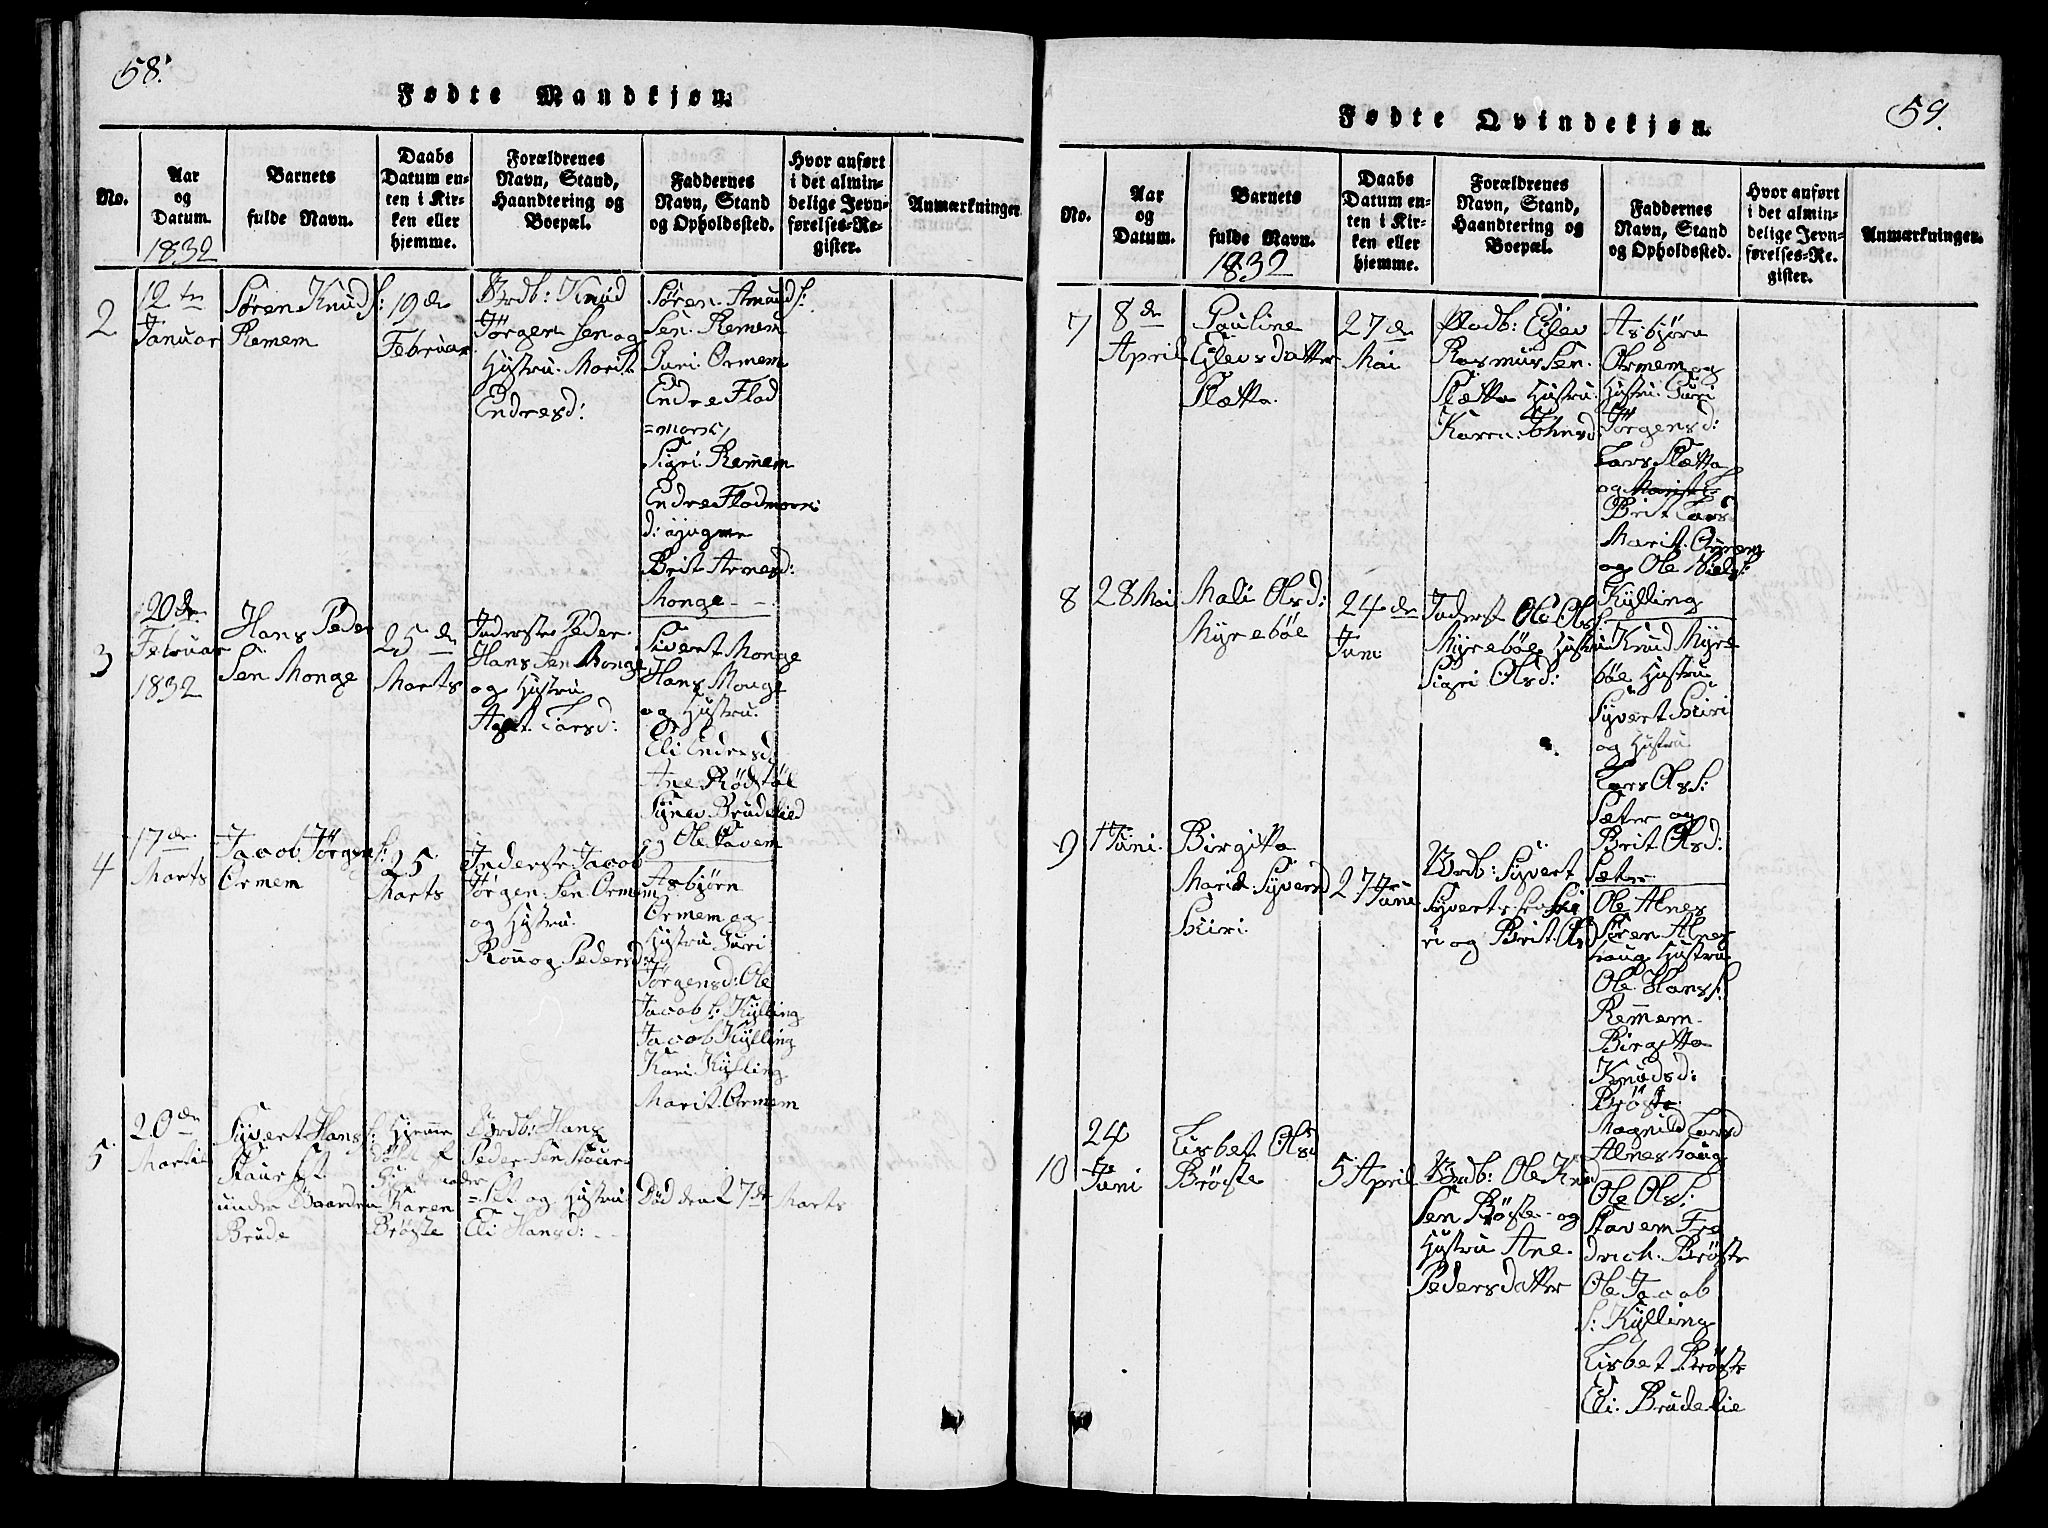 58.
Fødte Mandkjøn.
No.
Aar
og
Datum.
1832
Barnets
fulde Navn.
Daabs
Datum en-
ten i Kir-
ken eller
hjemme.
Forældrenes
Navn, Stand,
Haandtering og
Boepæl.
Faddernes
Navn, Stand
og Opholdssted.
Hvor anført
i det almin-
delige Jevn-
førelses-Re-
gister.
Anmærkninger.
2
12te
Januar
Søren Knuds:
Remem
19de
Februar
Brdb: Knud
Jørgensen og
Hustru Marit
Endresd:
Søren Amunds:
sen. Remem
Guri. Ormem
Endre Flad
=mark,
Sigri. Remem
Endre Fladmark
Brit Arnesd:
Monge
3
20de
Februar
1832
Hans Peder
Sen Monge
25de
Marts
Inderste Peder
HansSen Monge
og Hustru
Larsd:
Sivert Monge
Hans Monge
og Hustru.
Eli Endresd:
Ane Rødstøl
Synev Brudelied
og Ole Stavem
4
17de
Marts
Jacob Jørgens:
Ormem
25
Marts
Inderste Jacob
JørgenSen Ormem
og Hustru
Pedersd:
Asbjørn
Ormem og
Hustru Guri
Jørgensd: Ole
Jacobs: Kylling
Jacob Kylling
Kari Kylling
Marit. Ormem
5
20de
Martii
Syvert Hanss:
under
Brude
Hjemme
døbt af
Karen
Brøste
Brdb: Hans
PederSen
og Hustru
Eli Hansd:
Død den 27de Marts
59.
Fødte Qvindekjøn.
No.
Aar
og
Datum.
Barnets
fulde Navn.
1832
Daabs
Datum en-
ten i Kir-
ken eller
hjemme.
Forældrenes
Navn, Stand,
Haandtering og
Boepæl.
Faddernes
Navn, Stand
og Opholdssted.
Hvor anført
i det almin-
delige Jevn-
førelses-Re-
gister.
Anmærkninger.
7
8de
April
Pauline
Ejlevsdatter
Slætta.
27de
Mai
Pladb: Ejlev
RasmusSen.
Slætta Hustru
Karen. Johnsd:
Asbjørn
Ormem og
Hustru. Guri
Jørgensd:
Lars Slætta
og
Brit Larsd
Marit. Ormem
og Ole Nielss:
Kylling
8
28 Mai
Mali Olsd:
Myrebøe
24de
Juni
Inderst Ole Ols:
Myrebøe Hustru
Sigri Olsd:
Knud Myre
bøe Hustru
Syvert Skiri
og Hustru
Lars Olss:
Sæter og
Brit Olsd:
Sæter
9
1 Juni.
Birgitta
Marit Syversd
Skiri
27 Juni
Brdb: Syvert
Syverts. Ski
ri og Brit. Olsd
Ole Alnes
Søren Alnes
haug Hustru
Ole Hanss:
Remem
Birgitta
Knudsd:
Brøste
Magnild Larsd
Alneshaug
10
24
Juni
Lisbet Olsd
Brøste
5 April
Brdb: Ole Knud
Sen Brøste og
Hustru Ane.
Pedersdatter
Ole Olss:
Stavem Fre
drich. Brøste
Ole Jacob
s: Kylling
Lisbet Brøste
Eli. Brudelie